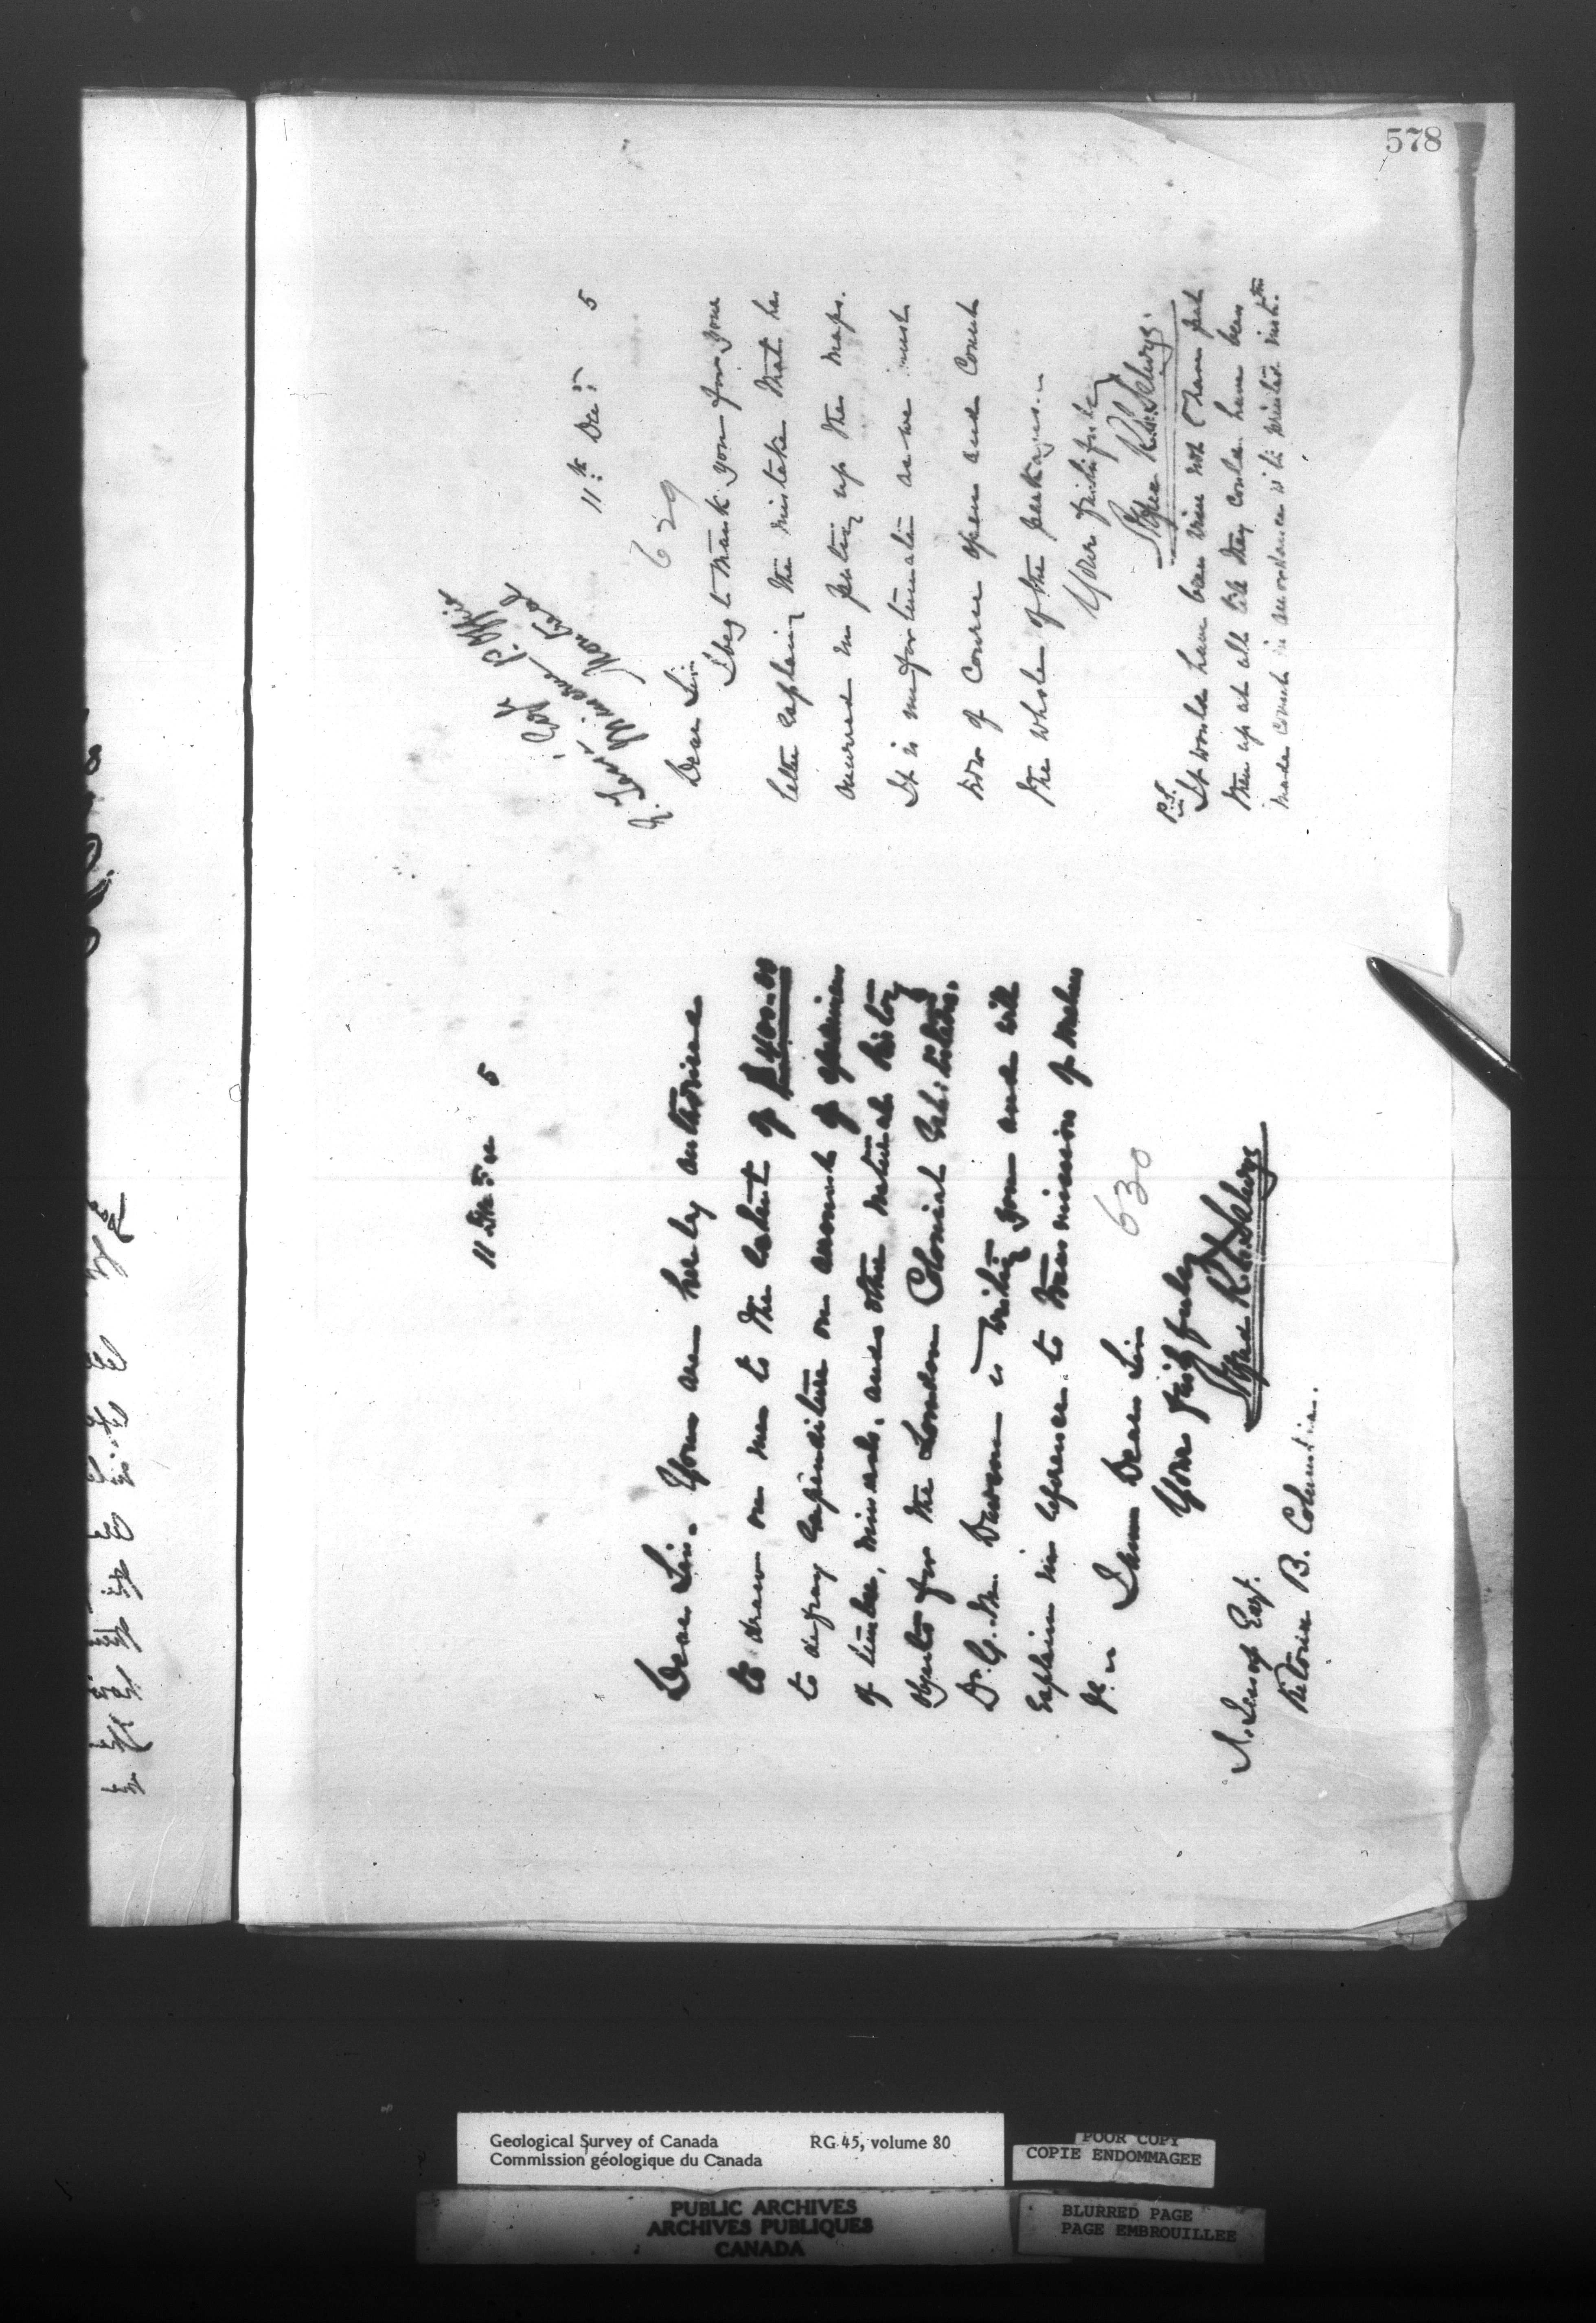 578
11 Dec 5
Dear Sir. You are hereby authorised
to draw on me to the extent of $400.00
to defray expenditure on account of specimens
of timber, minerals, and other natural history
objects for the London Colonial Exhibition.
Dr. G. M. Dawson is writing you and will
explain in reference to transmission of
&c
I am Dear Sir
630
Yours faithfully
Alfred R. C. Selwyn
Esq.
Victoria B. Columbia.
11th Dec 5
P. Office
Montreal
629
Dear Sir
I beg to thank you for your
letter explaining the mistake that has
occurred in putting up the maps.
It is unfortunate as we must
now of course open and count
the whole of the packages.
Yours faithfully
Alfred R. C. Selwyn
P.S.
It would have been wise not to have put
them up at all till they could have been
made count in accordance with printed
Geological Survey of Canada
Commission géologique du Canada
RG 45, volume 80
POOR COPY
COPIE ENDOMMAGEE
PUBLIC ARCHIVES
ARCHIVES PUBLIQUES
CANADA
BLURRED PAGE
PAGE EMBROUILLEE